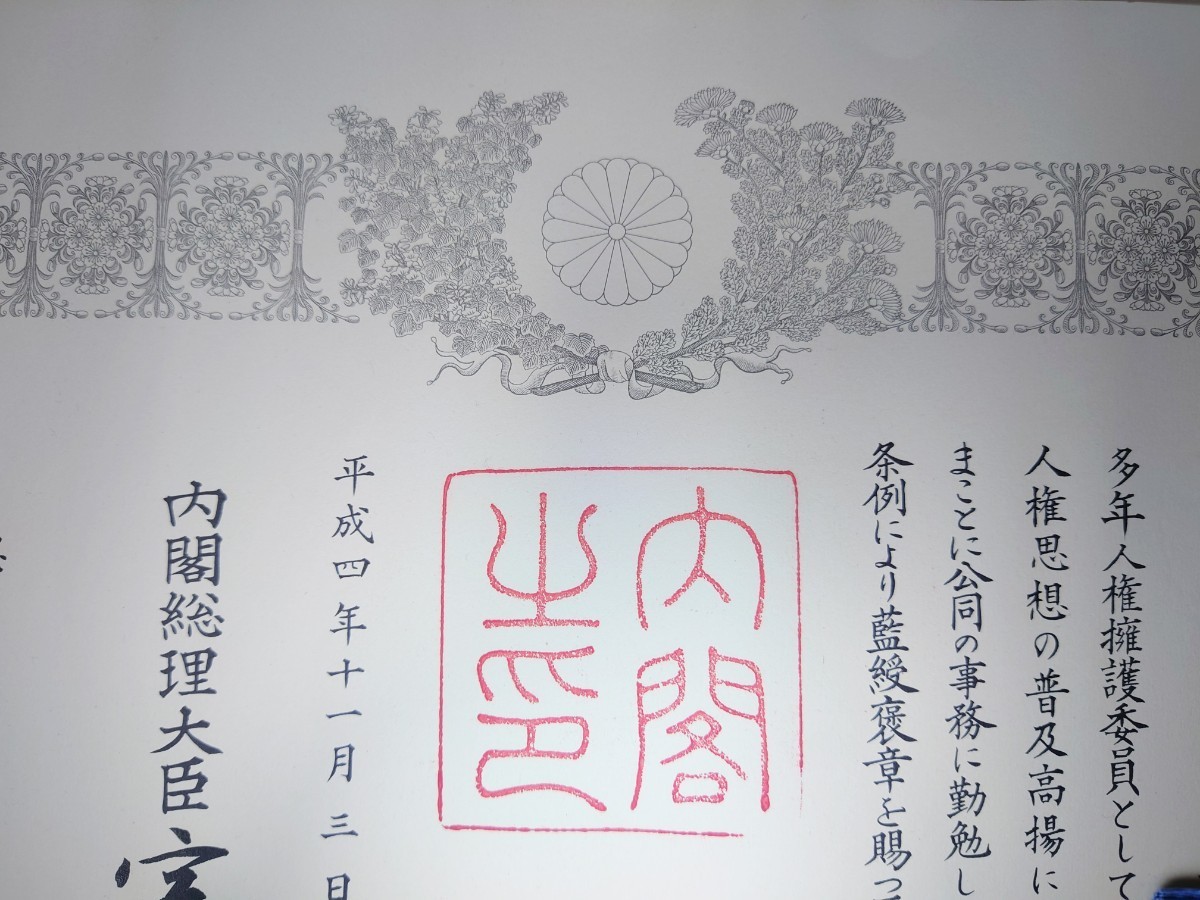 多年人権擁護委員として
人権思想の普及高揚に
まことに公同の事務に勤勉し
条例により藍綬褒章を賜つ
内閣
之印
平成四年十一月三日
内閣総理大臣 宮